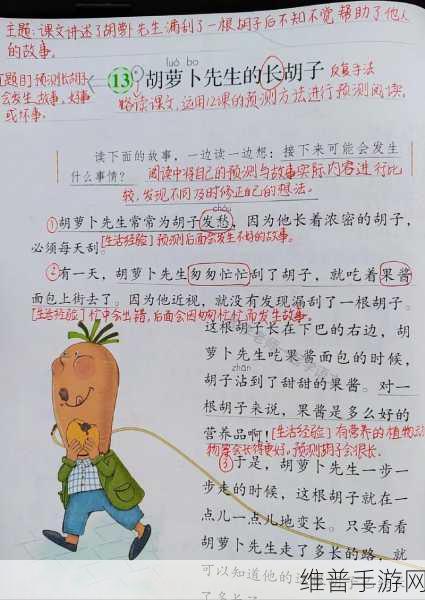 主题:课文讲述了胡萝卜先生漏刮了一根胡子后不知不觉帮助了他人
的故事。
luó bo
13 胡萝卜先生的长胡子 反复手法
[题目]预测长胡子
会发生故事，好事
或坏事。
略读课文，运用12课的预测方法进行预测阅读。
读下面的故事，一边读一边想：接下来可能会发生
什么事情？ 阅读中将自己的预测与故事实际内容进行比
较，发现不同及时修正自己的想法。
chóu
①胡萝卜先生常常为胡子发愁，因为他长着浓密的胡子，
必须每天刮。[生活经验]预测后面会发生不好的故事。
②有一天，胡萝卜先生匆匆忙忙刮了胡子，就吃着果酱
面包上街去了。因为他近视，就没有发现漏刮了一根胡子。
[生活经验]忙中会出错，后面会因匆匆忙忙而发生故事。
这根胡子长在下巴的右边，胡
萝卜先生吃果酱面包的时候，
zhān
胡子沾到了甜甜的果酱。对一
根胡子来说，果酱是多么好的
营养品啊！[生活经验]有营养的植物动
物会长得更好，预测胡子会很长。
③于是，胡萝卜先生一步一
步走的时候，这根胡子就在一
点儿一点儿地变长。只要看看
胡萝卜先生走了多长的路，就
可以知道他的
了多长了
维普手游网